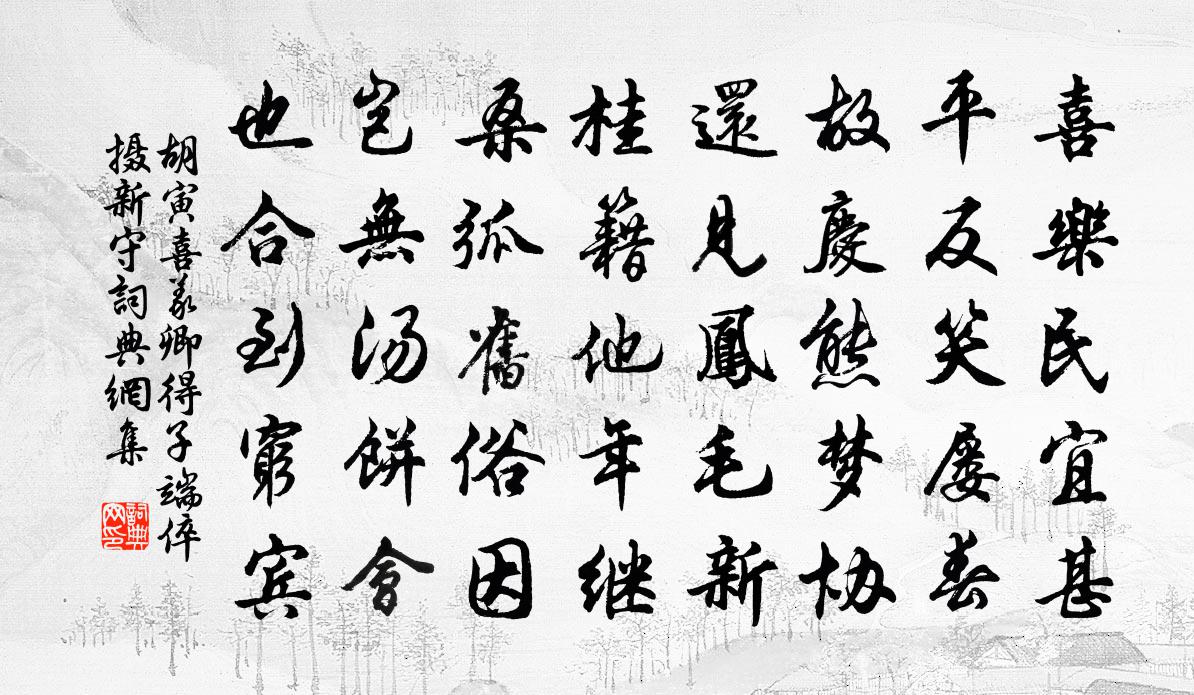 喜樂民宜甚
平反笑屡春
故慶熊梦协
還見鳳毛新
桂籍他年继
桑弧舊俗因
岂無汤餅會
也合到窮宾
胡寅喜羲卿得子端倅
摄新守詞典網集
詞典网印